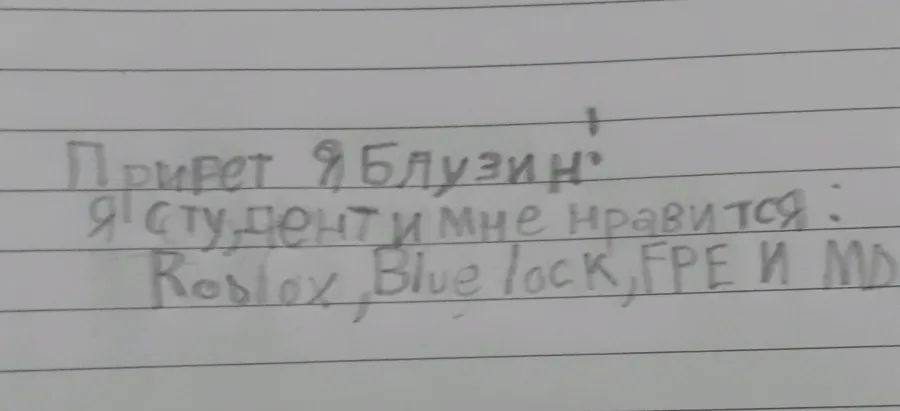 Привет я Блузин!
я студент и мне нравится:
Roblox, Blue lock, FPE и MD